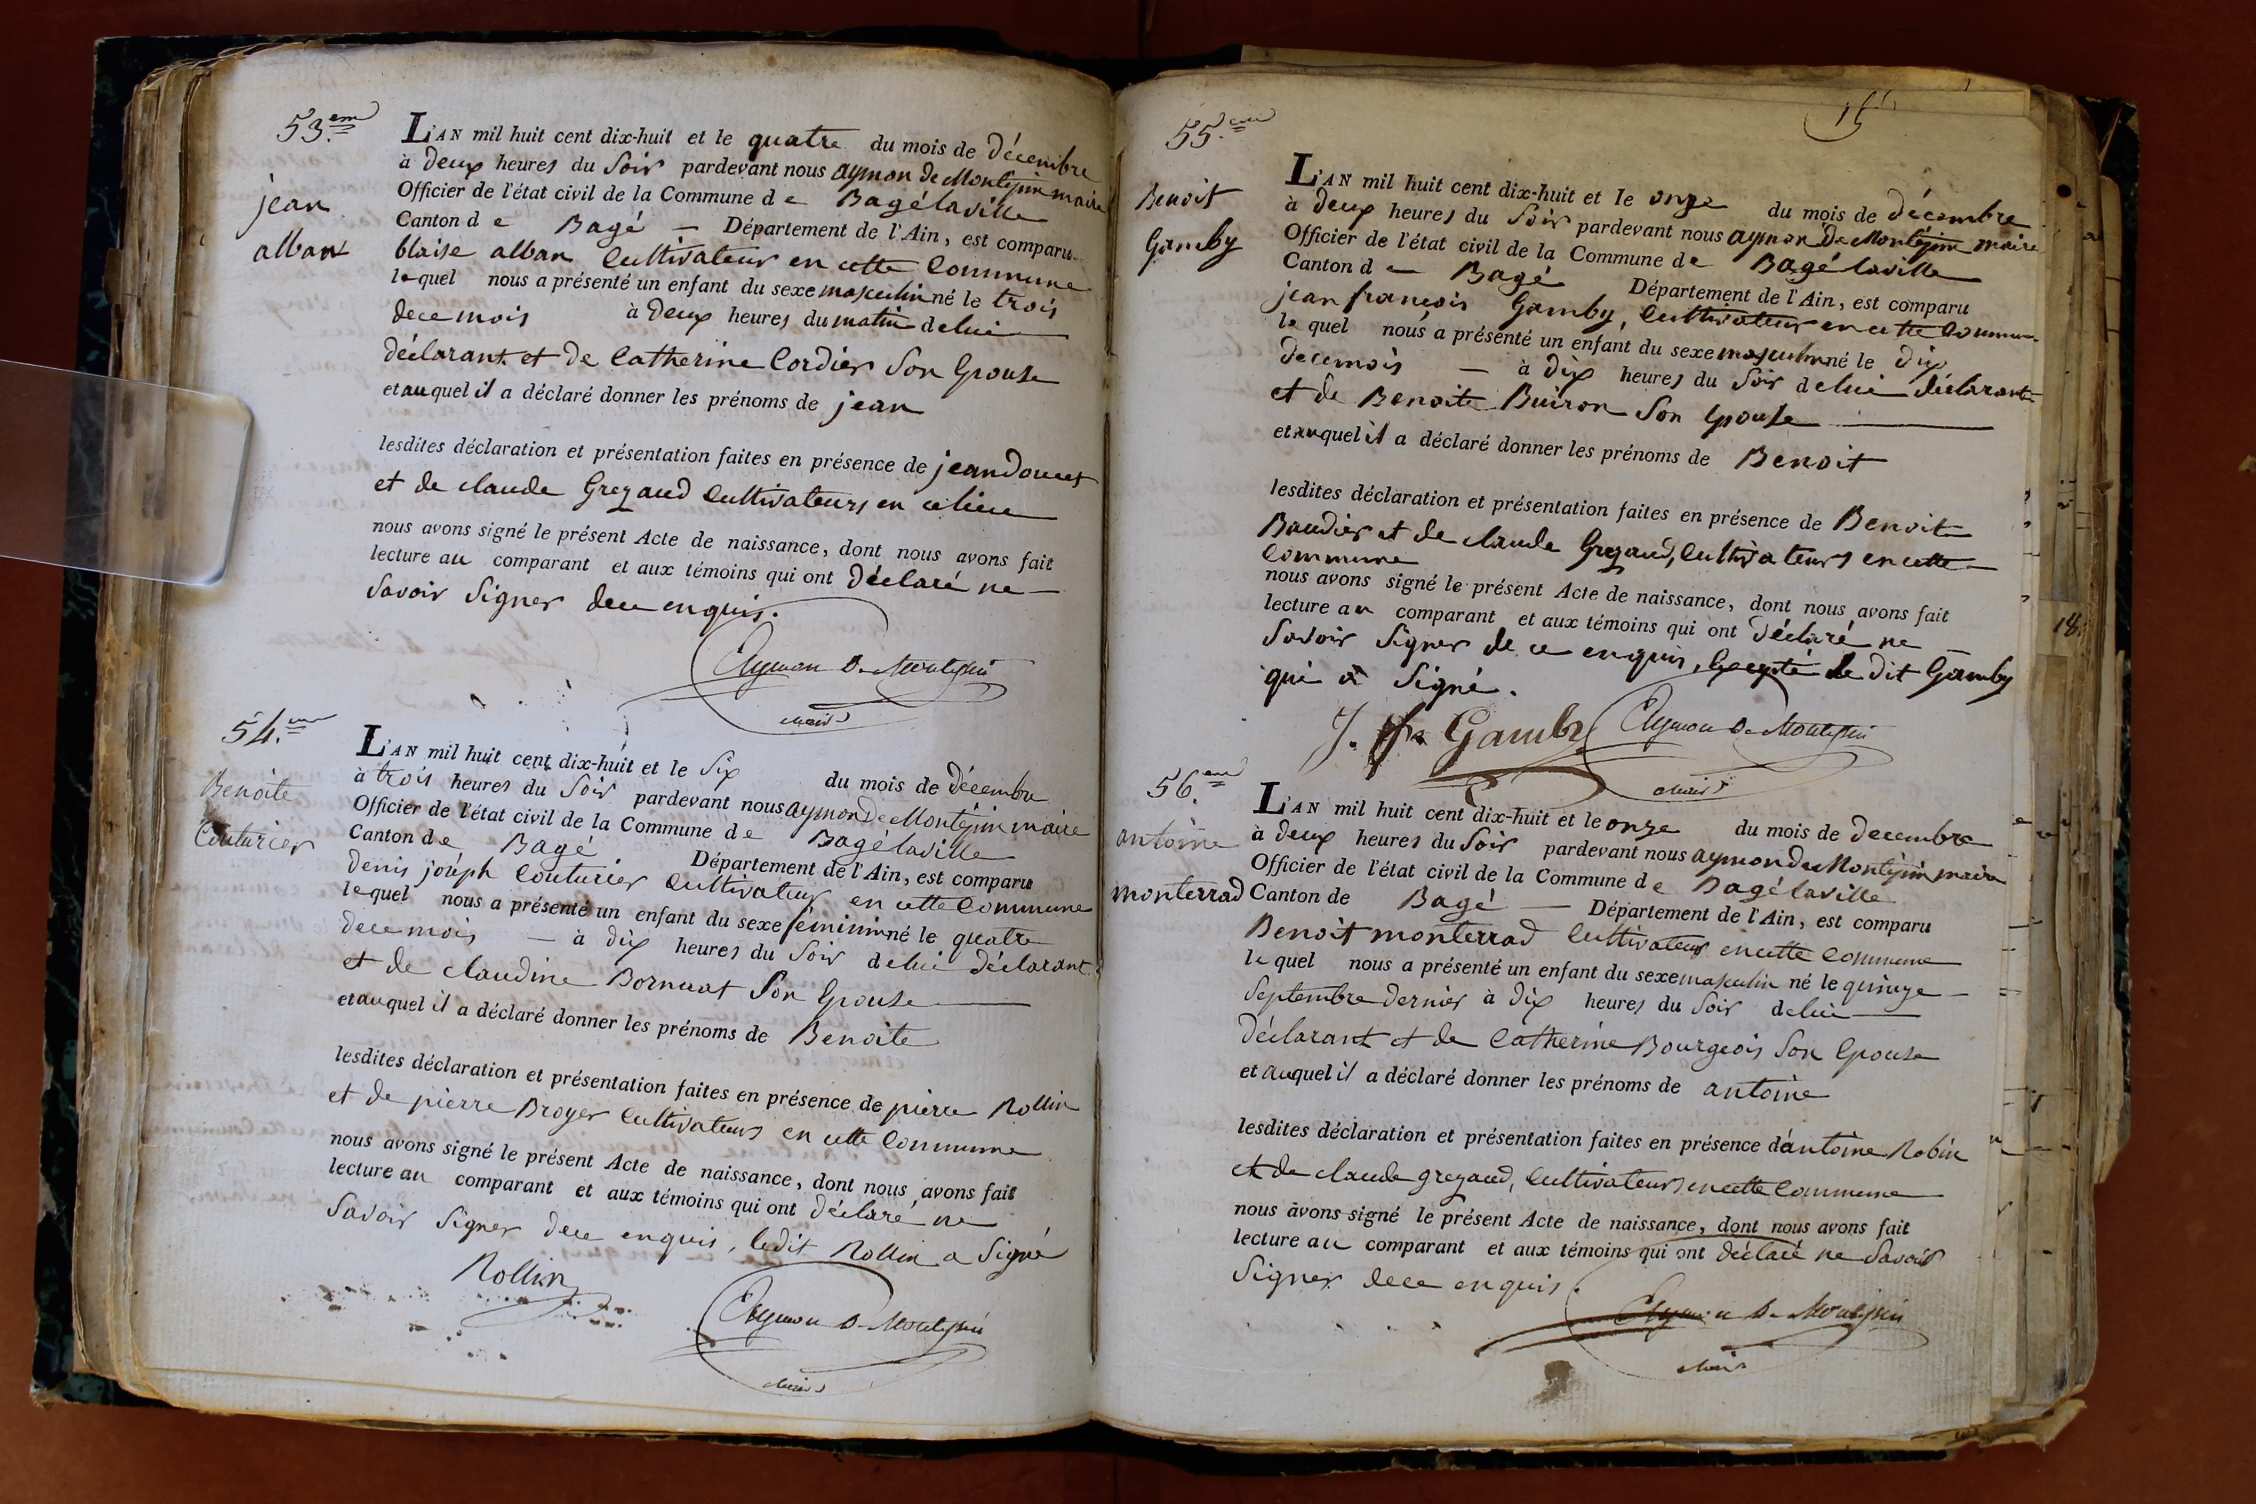 53.em
jean
alban
L'AN mil huit cent dix-huit et le quatre du mois de décembre
à deux heures du Soir pardevant nous aymon de Montépin maire
Officier de l'état civil de la Commune de Bagélaville
Canton de Bagé — Département de l'Ain, est comparu
blaise alban Cultivateur en cette Commune
lequel nous a présenté un enfant du sexe masculin né le trois
dece mois à deux heures du matin de lui
déclarant et de Catherine Cordier Son Epouse
et auquel il a déclaré donner les prénoms de jean
lesdites déclaration et présentation faites en présence de jean doucet
et de claude Grezaud Cultivateurs en ce lieu
nous avons signé le présent Acte de naissance, dont nous avons fait
lecture au comparant et aux témoins qui ont déclaré ne
Savoir Signer dece enquis.
Aymon De Montépin
maire
54.em
Benoite
Couturier
L'AN mil huit cent dix-huit et le Six du mois de décembre
à trois heures du Soir pardevant nous aymon de Montépin maire
Officier de l'état civil de la Commune de Bagélaville
Canton de Bagé Département de l'Ain, est comparu
denis joseph Couturier Cultivateur en cette Commune
lequel nous a présenté un enfant du sexe féminin né le quatre
dece mois — à dix heures du Soir de lui déclarant
et de claudine Bornuat Son Epouse
et auquel il a déclaré donner les prénoms de Benoite
lesdites déclaration et présentation faites en présence de pierre Rollin
et de pierre Broyer Cultivateurs en cette Commune
nous avons signé le présent Acte de naissance, dont nous avons fait
lecture au comparant et aux témoins qui ont déclaré ne
Savoir Signer dece enquis, ledit Rollin a Signé
Rollin
Aymon De Montépin
maire
55.em
Benoit
Gamby
L'AN mil huit cent dix-huit et le onze du mois de décembre
à deux heures du Soir pardevant nous aymon de Montépin maire
Officier de l'état civil de la Commune de Bagé laville
Canton de Bagé Département de l'Ain, est comparu
jean françois Gamby, Cultivateur en cette Commune
lequel nous a présenté un enfant du sexe masculin né le dix
dece mois — à dix heures du Soir de lui déclarant
et de Benoite Buiron Son Epouse
et auquel il a déclaré donner les prénoms de Benoit
lesdites déclaration et présentation faites en présence de Benoit
Baudier et de claude Grezaud, Cultivateurs en cette
Commune
nous avons signé le présent Acte de naissance, dont nous avons fait
lecture au comparant et aux témoins qui ont déclaré ne
Savoir Signer de ce enquis, Excepté le dit Gamby
qui a Signé.
J. fr Gamby
Aymon De Montépin
maire
56.em
antoine
monterrad
L'AN mil huit cent dix-huit et le onze du mois de decembre
à deux heures du Soir pardevant nous aymon de Montépin maire
Officier de l'état civil de la Commune de Bagé laville
Canton de Bagé — Département de l'Ain, est comparu
Benoit monterrad Cultivateur en cette Commune
lequel nous a présenté un enfant du sexe masculin né le quinze
Septembre dernier à dix heures du Soir de lui
déclarant et de Catherine Bourgeois Son Epouse
et auquel il a déclaré donner les prénoms de antoine
lesdites déclaration et présentation faites en présence d'antoine Robin
et de claude grezaud, Cultivateurs en cette Commune
nous avons signé le présent Acte de naissance, dont nous avons fait
lecture au comparant et aux témoins qui ont déclaré ne Savoir
Signer dece enquis.
Aymon De Montépin
maire
18